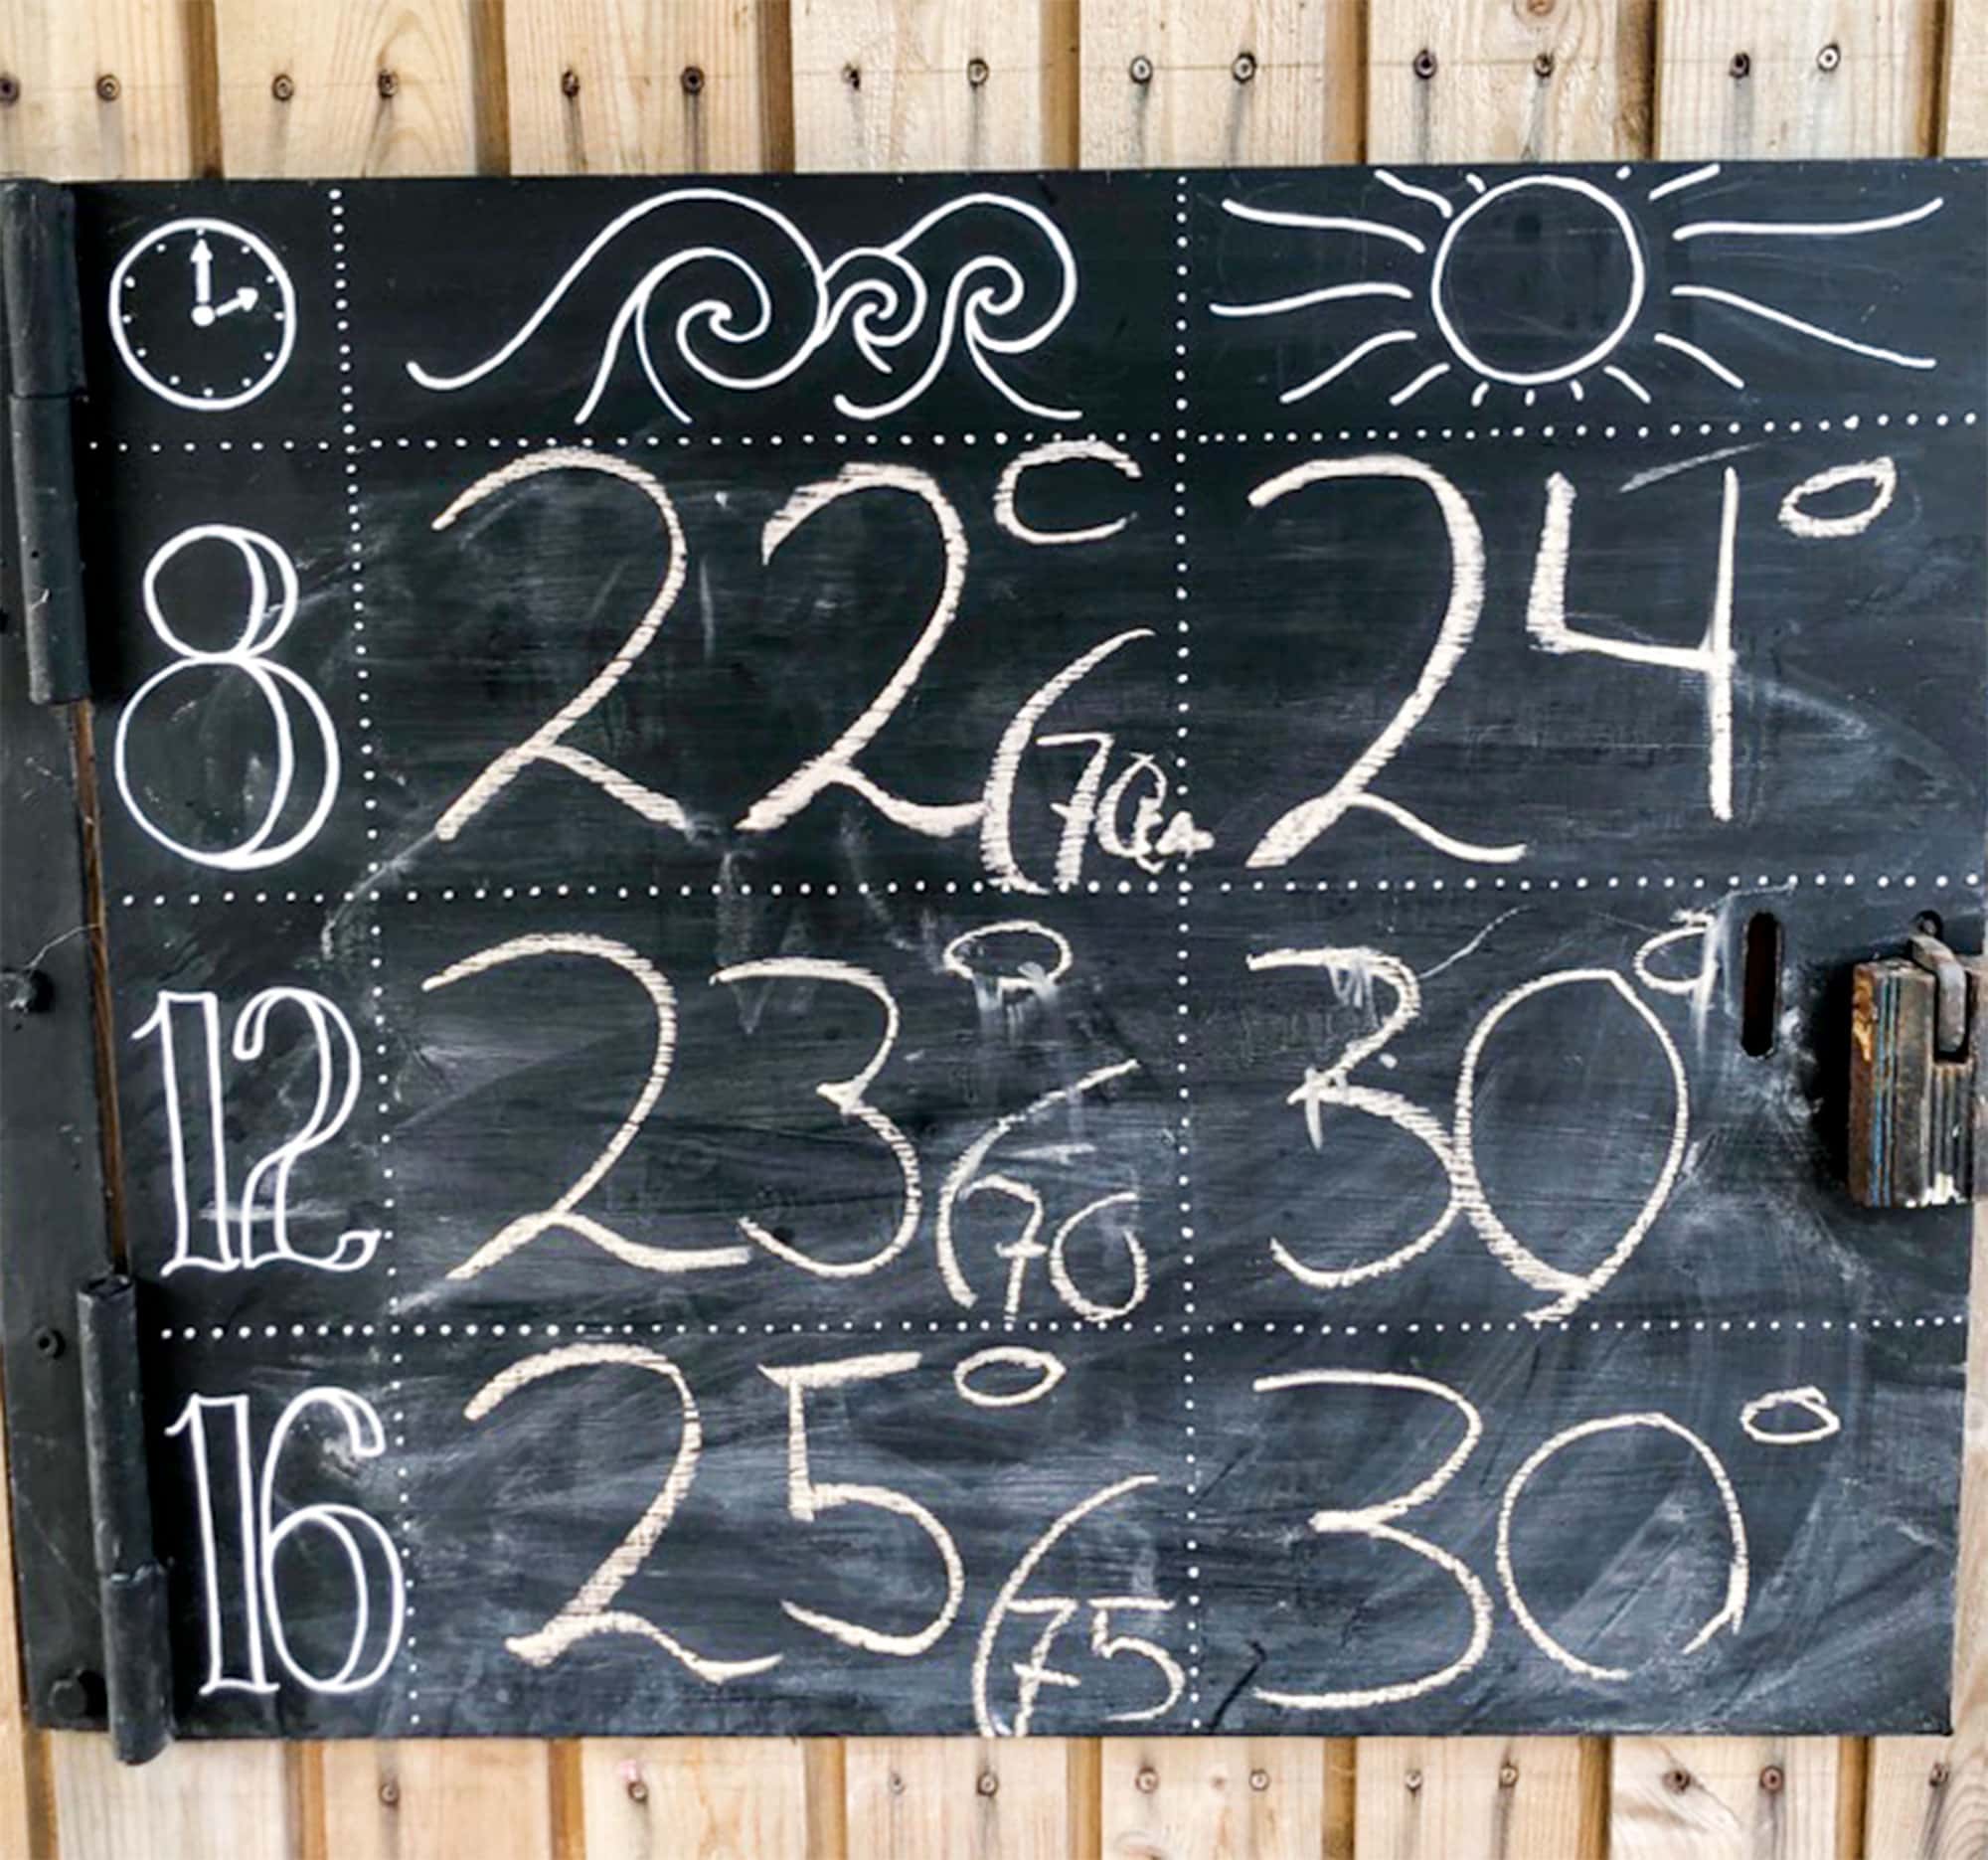 8 22° (70cm 24°
12 23° (70 30°
16 25° (75 30°